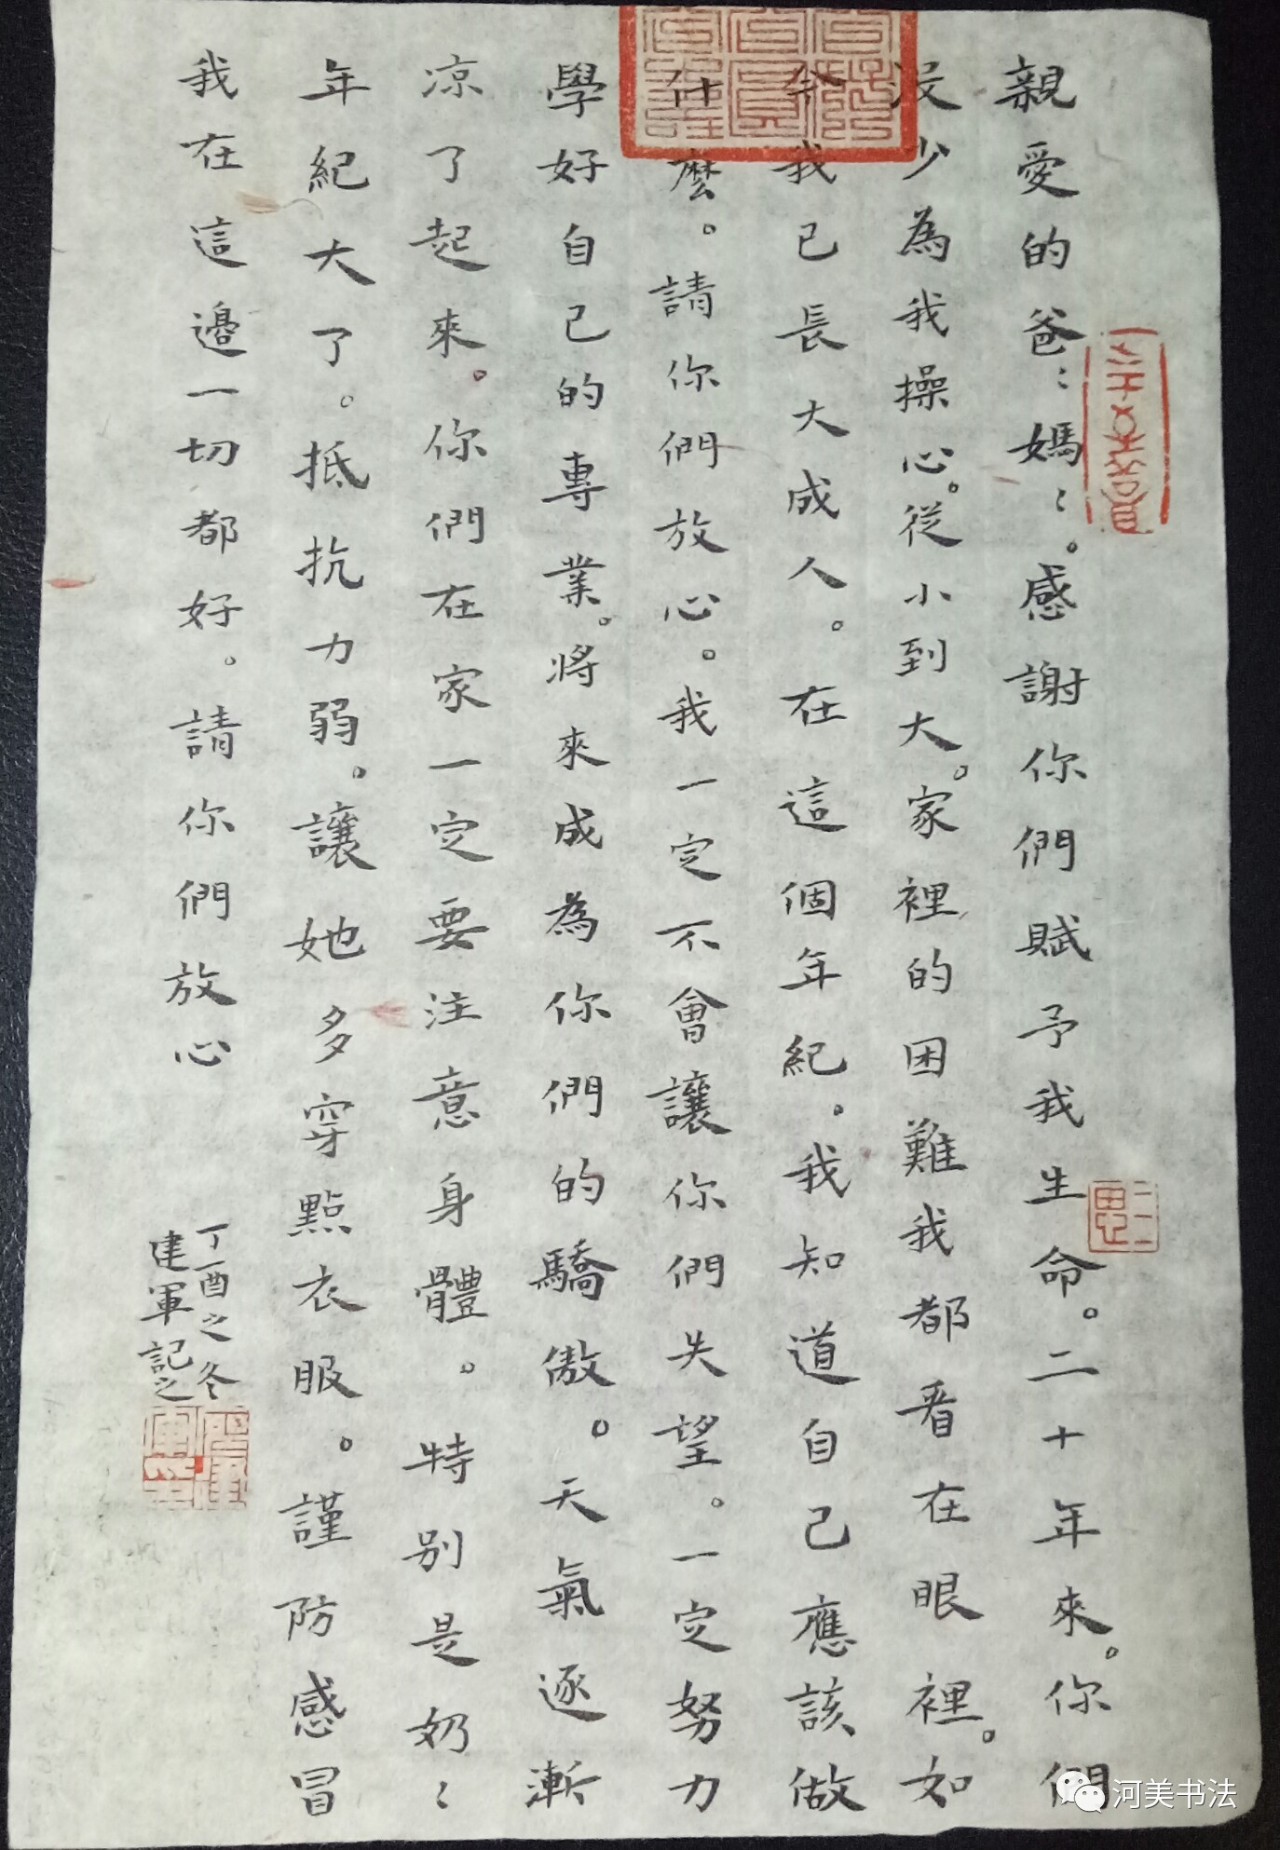 親愛的爸：媽：。感謝你們賦予我生命。二十年來。你們
沒少為我操心。從小到大。家裡的困難我都看在眼裡。如
今我已長大成人。在這個年紀。我知道自己應該做
什麼。請你們放心。我一定不會讓你們失望。一定努力
學好自己的專業。將來成為你們的驕傲。天氣逐漸
凉了起來。你們在家一定要注意身體。特別是奶：
年紀大了。抵抗力弱。讓她多穿點衣服。謹防感冒
我在這邊一切都好。請你們放心
丁酉之冬
建軍記之
河美书法